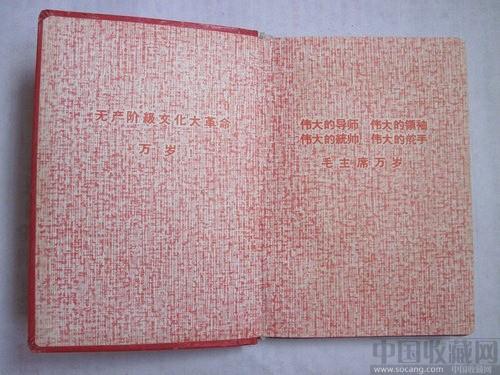 无产阶級文化大革命
万岁
伟大的导师 伟大的領袖
伟大的統帅 伟大的舵手
毛主席万岁
中国收藏网
www.socang.com 中国收藏网